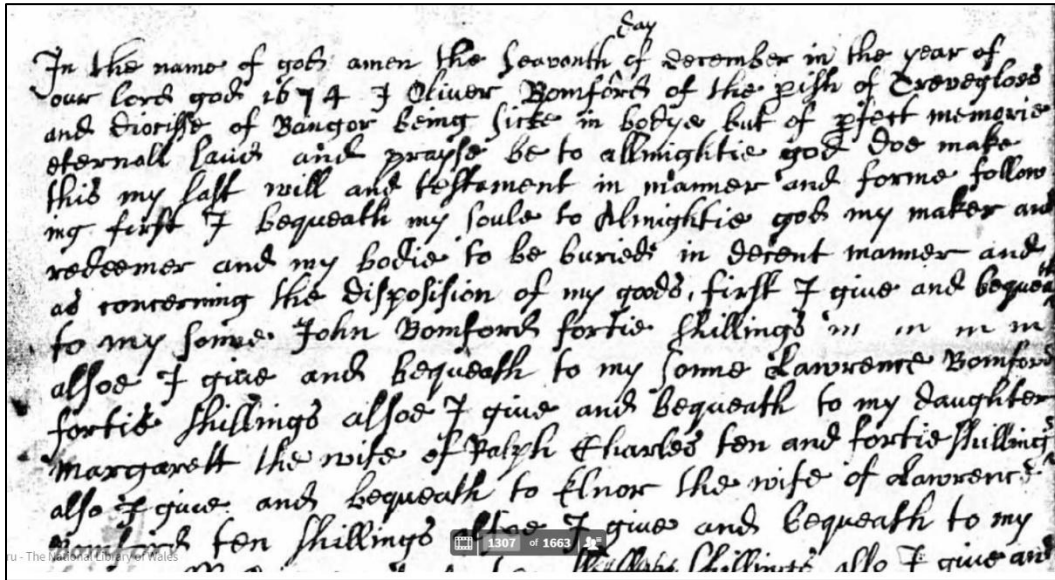 day
In the name of god amen the seaventh of december in the year of
our lord god 1674 I Oliver Bomford of the pish of Trevegloes
and diocisse of Bangor being sicke in bodye but of pfect memorie
eternall laud and prayse be to allmightie god doe make
this my last will and testament in manner and forme follow
ing first I bequeath my soule to Almightie god my maker and
redeemer and my bodie to be buried in decent manner and
as concerning the disposision of my goods, first I give and bequeath
to my sonne John Bomford fortie shillings
allsoe I give and bequeath to my sonne Lawrence Bomford
fortie shillings allsoe I give and bequeath to my daughter
Margarett the wife of Ralph Charles ten and fortie shillings
also I give and bequeath to Elnor the wife of Lawrence
Bomford ten shillings allsoe I give and bequeath to my
shillings also I give and
ru - The National Library of Wales
1307 of 1663